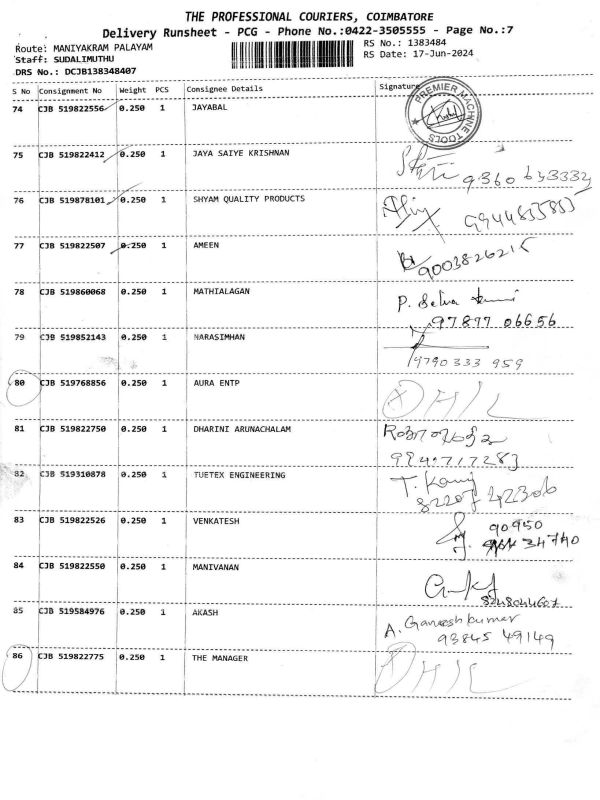 THE PROFESSIONAL COURIERS, COIMBATORE
Delivery Runsheet - PCG - Phone No.:0422-3505555 - Page No.:7
Route: MANIYAKRAM PALAYAM
RS No.: 1383484
Staff: SUDALIMUTHU
RS Date: 17-Jun-2024
DRS No.: DCJB138348407
S No Consignment No Weight PCS Consignee Details Signature
PREMIER MACHINE TOOLS
74 CJB 519822556 0.250 1 JAYABAL
75 CJB 519822412 0.250 1 JAYA SAIYE KRISHNAN
76 CJB 519878101 0.250 1 SHYAM QUALITY PRODUCTS
77 CJB 519822507 0.250 1 AMEEN
9003826215
78 CJB 519860068 0.250 1 MATHIALAGAN
P. Selva
97897 06656
79 CJB 519852143 0.250 1 NARASIMHAN
9790333 959
80 CJB 519768856 0.250 1 AURA ENTP
D/H/L
81 CJB 519822750 0.250 1 DHARINI ARUNACHALAM
82 CJB 519310878 0.250 1 TUETEX ENGINEERING
T.
82207 42306
83 CJB 519822526 0.250 1 VENKATESH
90950
34740
84 CJB 519822550 0.250 1 MANIVANAN
8248044607
85 CJB 519584976 0.250 1 AKASH
A. Ganeesh kumar
93845 49149
86 CJB 519822775 0.250 1 THE MANAGER
D/H/L